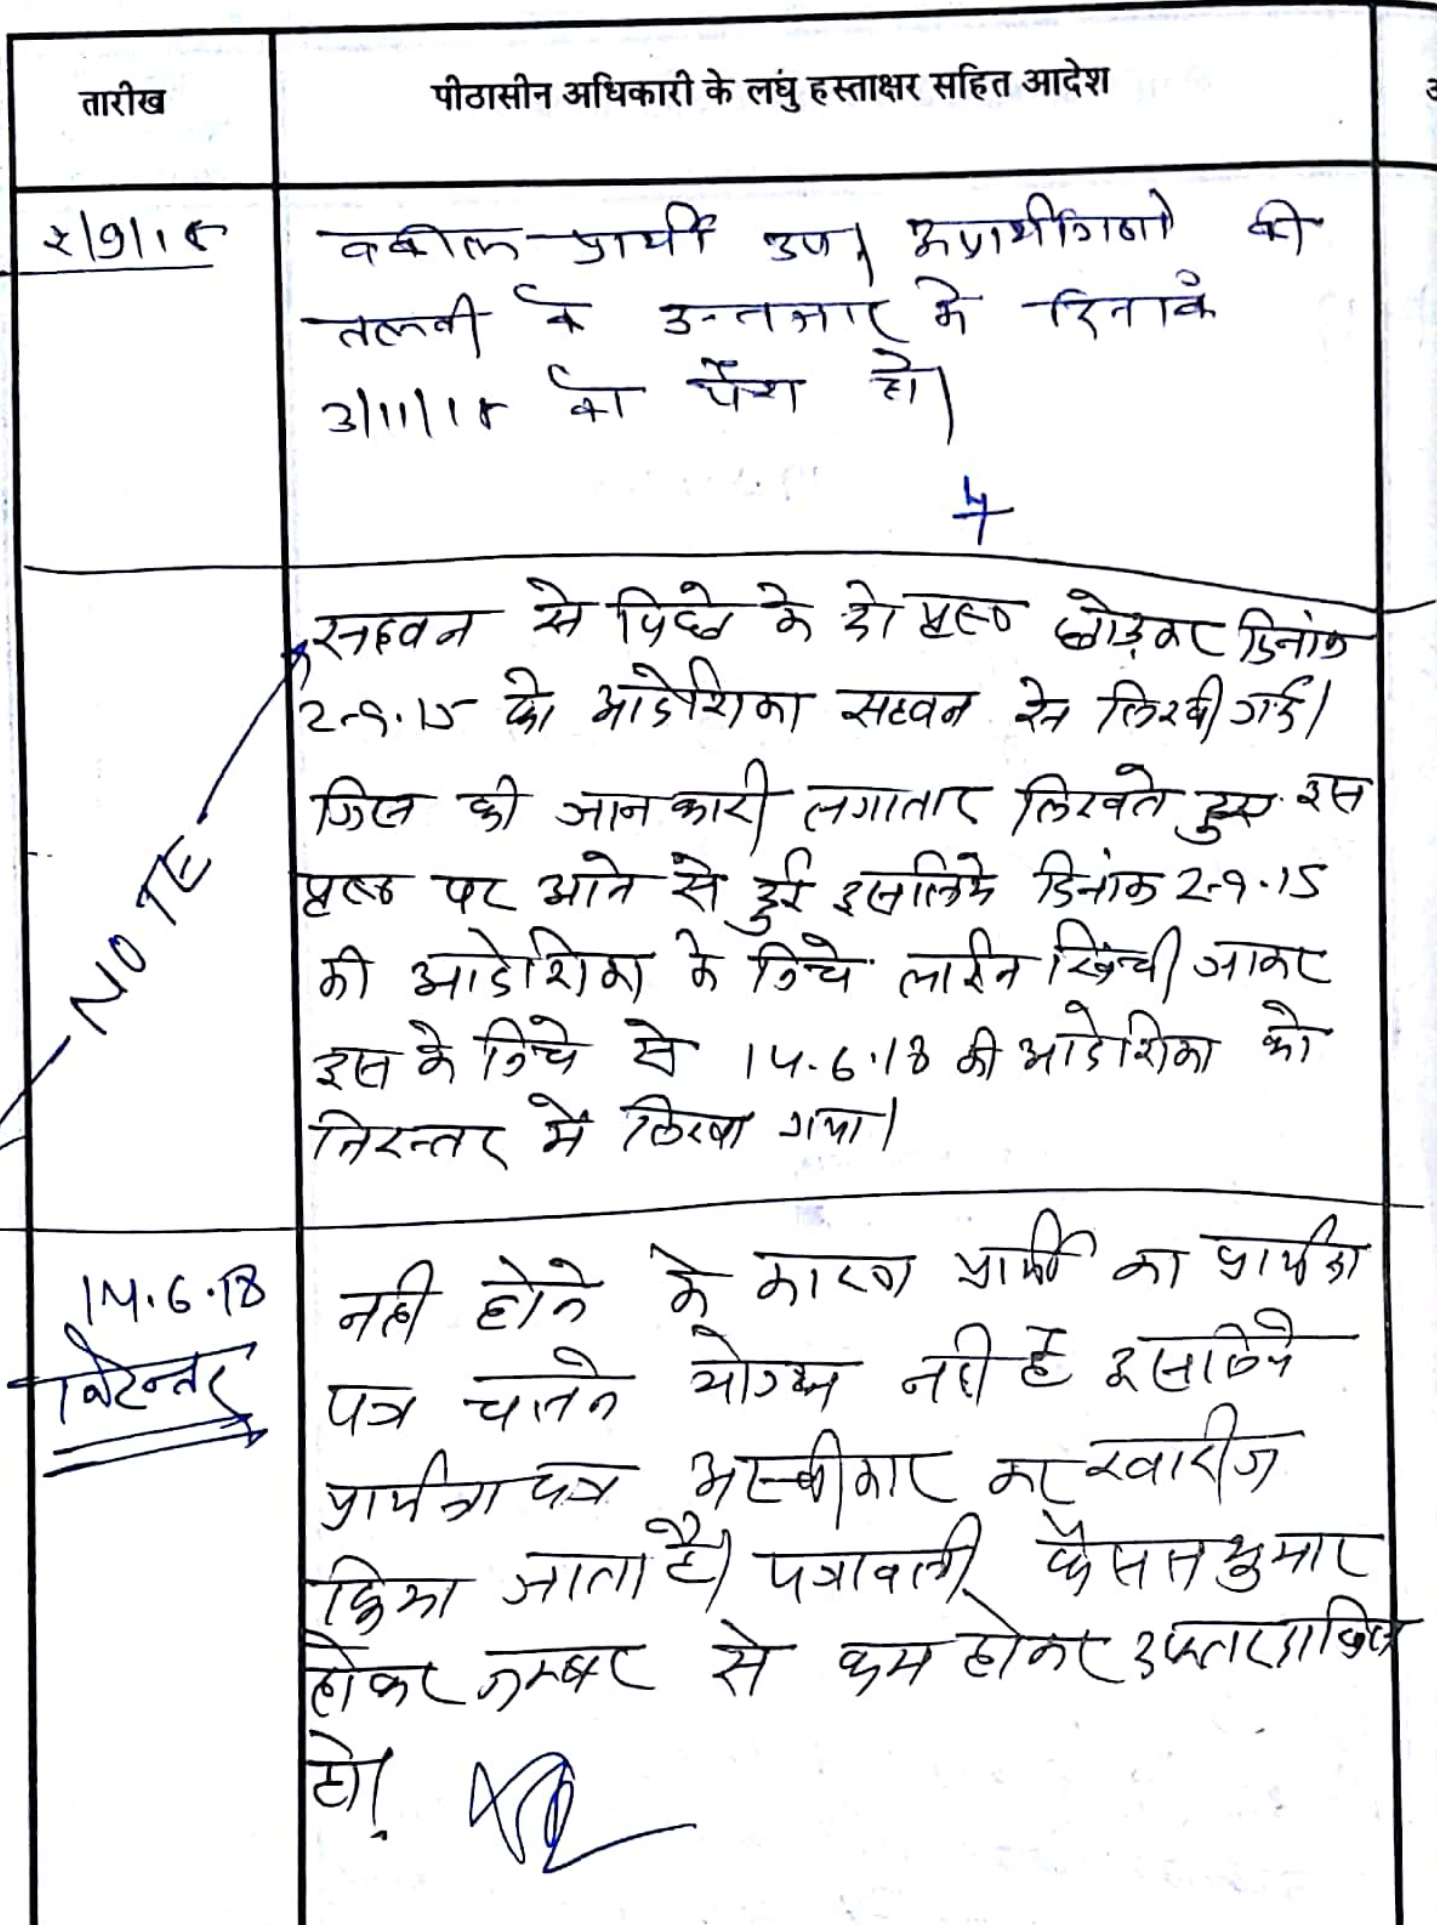 तारीख
पीठासीन अधिकारी के लघु हस्ताक्षर सहित आदेश
2/9/15
वकील प्रार्थी उप। अप्रार्थीगणो की
तलबी के इन्तजार मे दिनांक
3/11/15 को पेश हो।
NOTE
सहवन से पिछे के दो पृष्ठ छोड़कर दिनांक
2-9-15 की आदेशिका सहवन से लिखी गई।
जिस की जानकारी लगातार लिखते हुए इस
पृष्ठ पर आने से हुई इसलिये दिनांक 2-9-15
की आदेशिका के निचे लाईन खिंची जाकर
इस के निचे से 14.6.18 की आदेशिका को
निरन्तर में लिखा गया।
14.6.18
निरन्तर
नही होने के कारण प्रार्थी का प्रार्थना
पत्र चलने योग्य नही है इसलिये
प्रार्थना पत्र अस्वीकार कर खारीज
किया जाता है। पत्रावली फैसल शुमार
होकर नम्बर से कम होकर दफ्तर दाखिल
हो।